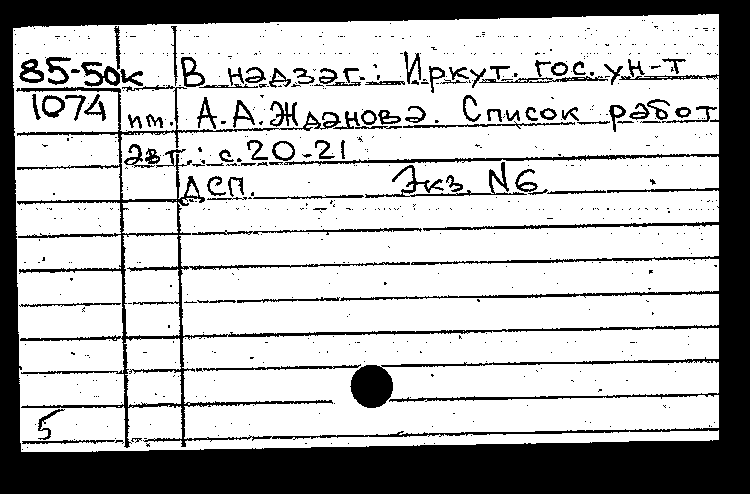 85-50к В надзаг.: Иркут. гос. ун-т
1074 им. А.А.Жданова. Список работ
авт.: с.20-21
ДСП. Экз. N6
5